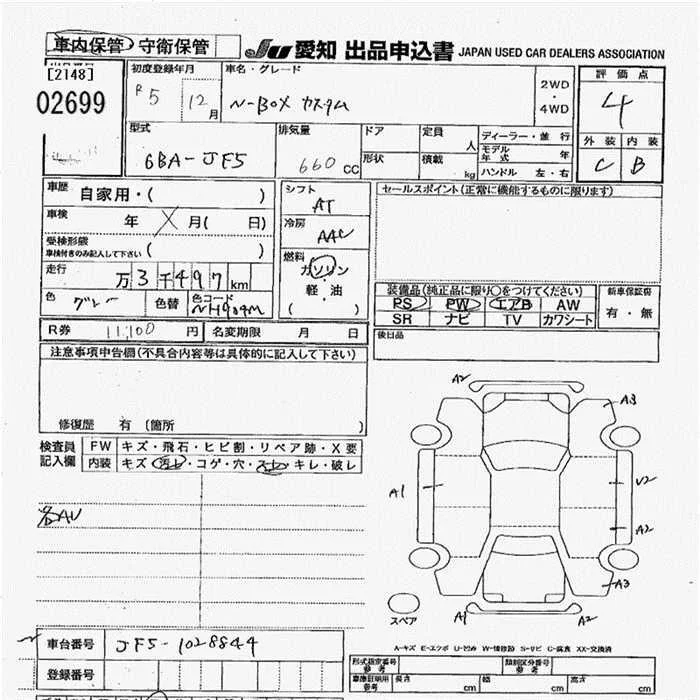 車内保管 守衛保管 JU 愛知 出品申込書 JAPAN USED CAR DEALERS ASSOCIATION
[2148]
02699
初度登録年月
R5 12月
車名・グレード
N-BOX カスタム
2WD
・
4WD
評価点
4
外装 内装
C B
型式
6BA-JF5
排気量
660 CC
ドア
形状
定員 人
積載 kg
ディーラー・並行
モデル年式 年
ハンドル 左・右
車歴 自家用・( )
車検 年 X 月( 日)
受検形態
車検付きのみ記入して下さい ( )
走行 万3千497km
色 グレー 色替 色コード NH904M
シフト
AT
冷房
AAC
燃料
ガソリン
・
軽・油
( )
セールスポイント(正常に機能するものに限ります)
装備品(純正品に限り○をつけてください)
PS PW エアB AW
SR ナビ TV カワシート
新車保証書
有・無
R券 11,100 円 名変期限 月 日
後日品
注意事項申告欄(不具合内容等は具体的に記入して下さい)
修復歴 有 〔箇所 〕
検査員記入欄
FW キズ・飛石・ヒビ割・リペア跡・X要
内装 キズ・汚れ・コゲ・穴・スレ・キレ・破レ
各AU
A2
A3
A1
U2
A2
A3
A1
A2
スペア
A-キズ E-エクボ U-凹み W-補修跡 S-サビ C-腐食 XX-交換済
車台番号 JF5-1028844
登録番号
形式指定番号 参考
類別区分番号 参考
車庫証明用 参考 長さ cm 幅 cm 高さ cm